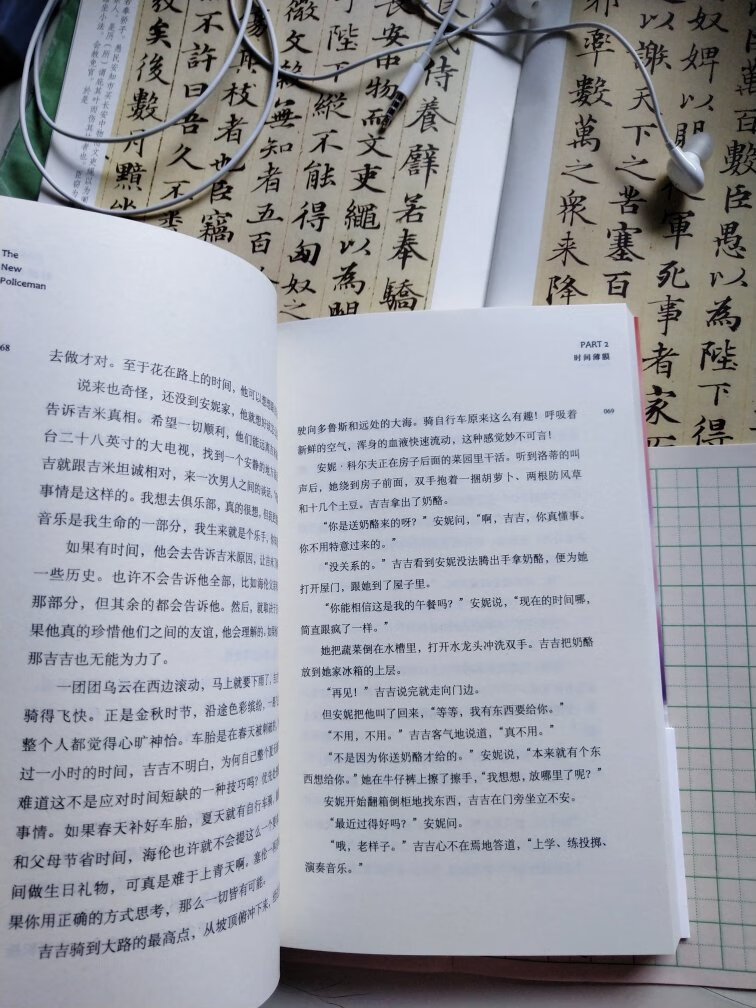 The
New
Policeman
68
去做才对。至于花在路上的时间，他可以想
说来也奇怪，还没到安妮家，他就想好
告诉吉米真相。希望一切顺利，他们能远离
台二十八英寸的大电视，找到一个安静的地方
吉就跟吉米坦诚相对，来一次男人之间的谈话。
事情是这样的。我想去俱乐部，真的很想，但我
音乐是我生命的一部分，我生来就是个乐手，
如果有时间，他会去告诉吉米原因，让吉
一些历史。也许不会告诉他全部，比如海伦
那部分，但其余的都会告诉他。然后，就取决于
果他真的珍惜他们之间的友谊，他会理解的，如
那吉吉也无能为力了。
一团团乌云在西边滚动，马上就要下雨了，
骑得飞快。正是金秋时节，沿途色彩缤纷，一
整个人都觉得心旷神怡。车胎是在春天被刺
过一小时的时间，吉吉不明白，为何自己整个夏
难道这不是应对时间短缺的一种技巧吗？优先
事情。如果春天补好车胎，夏天就有自行车骑，
和父母节省时间，海伦也许就不会提这么一个
间做生日礼物，可真是难于上青天啊。塞伦
果你用正确的方式思考，那么一切皆有可能。
吉吉骑到大路的最高点，从坡顶俯冲下来，
PART 2
时间薄膜
069
驶向多鲁斯和远处的大海。骑自行车原来这么有趣！呼吸着
新鲜的空气，浑身的血液快速流动，这种感觉妙不可言！
安妮·科尔夫正在房子后面的菜园里干活。听到洛蒂的叫
声后，她绕到房子前面，双手抱着一捆胡萝卜、两根防风草
和十几个土豆。吉吉拿出了奶酪。
“你是送奶酪来的呀？”安妮问，“啊，吉吉，你真懂事。
你不用特意过来的。”
“没关系的。”吉吉看到安妮没法腾出手拿奶酪，便为她
打开屋门，跟她到了屋子里。
“你能相信这是我的午餐吗？”安妮说，“现在的时间哪，
简直跟疯了一样。”
她把蔬菜倒在水槽里，打开水龙头冲洗双手。吉吉把奶酪
放到她家冰箱的上层。
“再见！”吉吉说完就走向门边。
但安妮把他叫了回来，“等等，我有东西要给你。”
“不用，不用。”吉吉客气地说道，“真不用。”
“不是因为你送奶酪才给的。”安妮说，“本来就有个东
西想给你。”她在牛仔裤上擦了擦手，“我想想，放哪里了呢？”
安妮开始翻箱倒柜地找东西，吉吉在门旁坐立不安。
“最近过得好吗？”安妮问。
“哦，老样子。”吉吉心不在焉地答道，“上学、练投掷、
演奏音乐。”
万百数臣愚以為陛下得
奴婢以賜從軍死事者家
以謝天下之苦塞百
邪率數萬之衆来降
侍養譬若奉驕
長安中物而文吏繩以為
陛下縱不能得匈奴之
微文殺無知者五百
其枝者也臣竊
不許曰吾久不
矣後數月黯坐